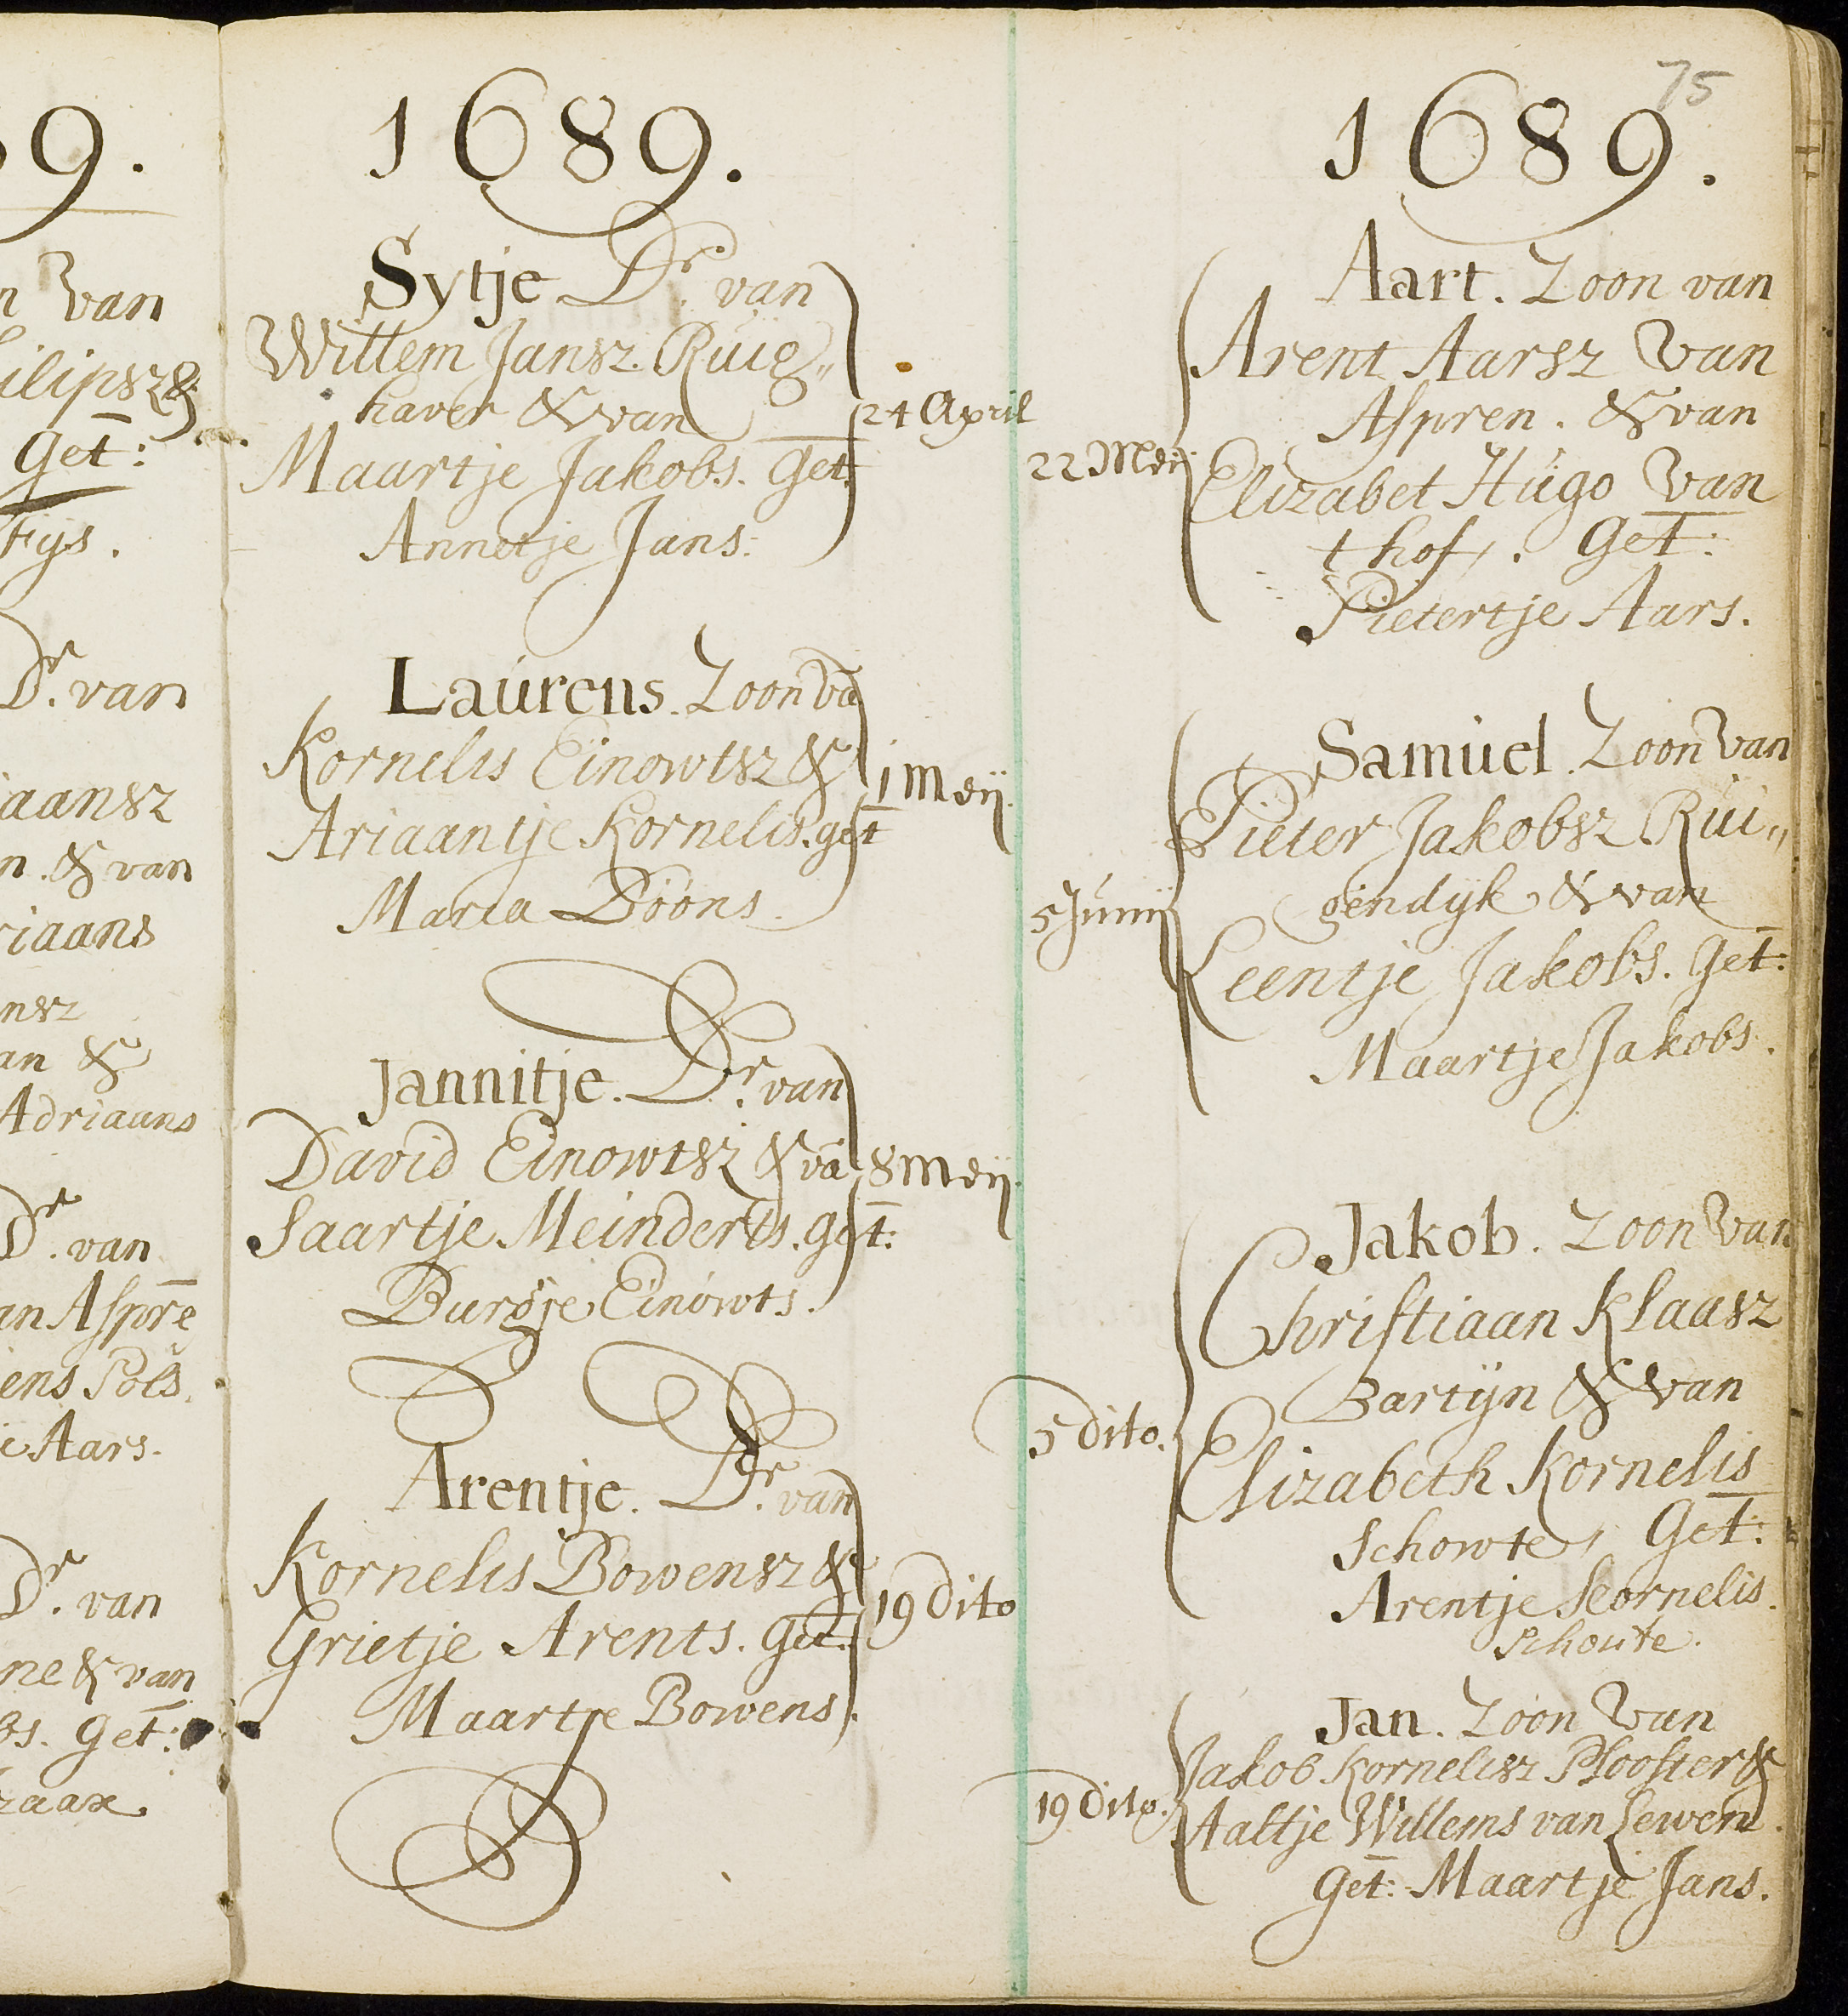 9.
n van
ilipsz &
Get:
Fijs.
Dr. van
iaansz
n. & van
riaans
nsz
an &
Adriaans
Dr. van
an Aspre
ens Pols.
e Aars.
Dr. van
ne & van
bs. Get:
zaax
1689.
Sytje Dr. van
Willem Jansz. Ruig„
haver & van
24 April
Maartje Jakobs. Get:
Annetje Jans.
Laurens. Zoon va
Kornelis Einowtsz &
1 Meij.
Ariaantje Kornelis. get
Maria Boons.
Jannitje. Dr. van
David Einowtsz & va
8 Meij.
Saartje Meinderts. get:
Burgje Einowts.
Arentje. Dr. van
Kornelis Bowensz &
19 Dito
Grietje Arents. Get:
Maartje Bowens.
75
1689.
Aart. Zoon van
Arent Aarsz van
Aspren. & van
22 Meij
Elizabet Hugo van
t hof. Get:
Pietertje Aars.
Samuel. Zoon van
Pieter Jakobsz. Rui„
5 Junij
gendyk & van
Leentje Jakobs. Get:
Maartje Jakobs.
Jakob. Zoon van
Christiaan Klaasz
Bartijn & van
5 Dito.
Elizabeth Kornelis
Schowte, Get:
Arentje Kornelis.
Schoute.
Jan. Zoon van
Jakob Kornelisz Plooster &
19 Dito.
Aaltje Willems van Lewen.
Get: Maartje Jans.